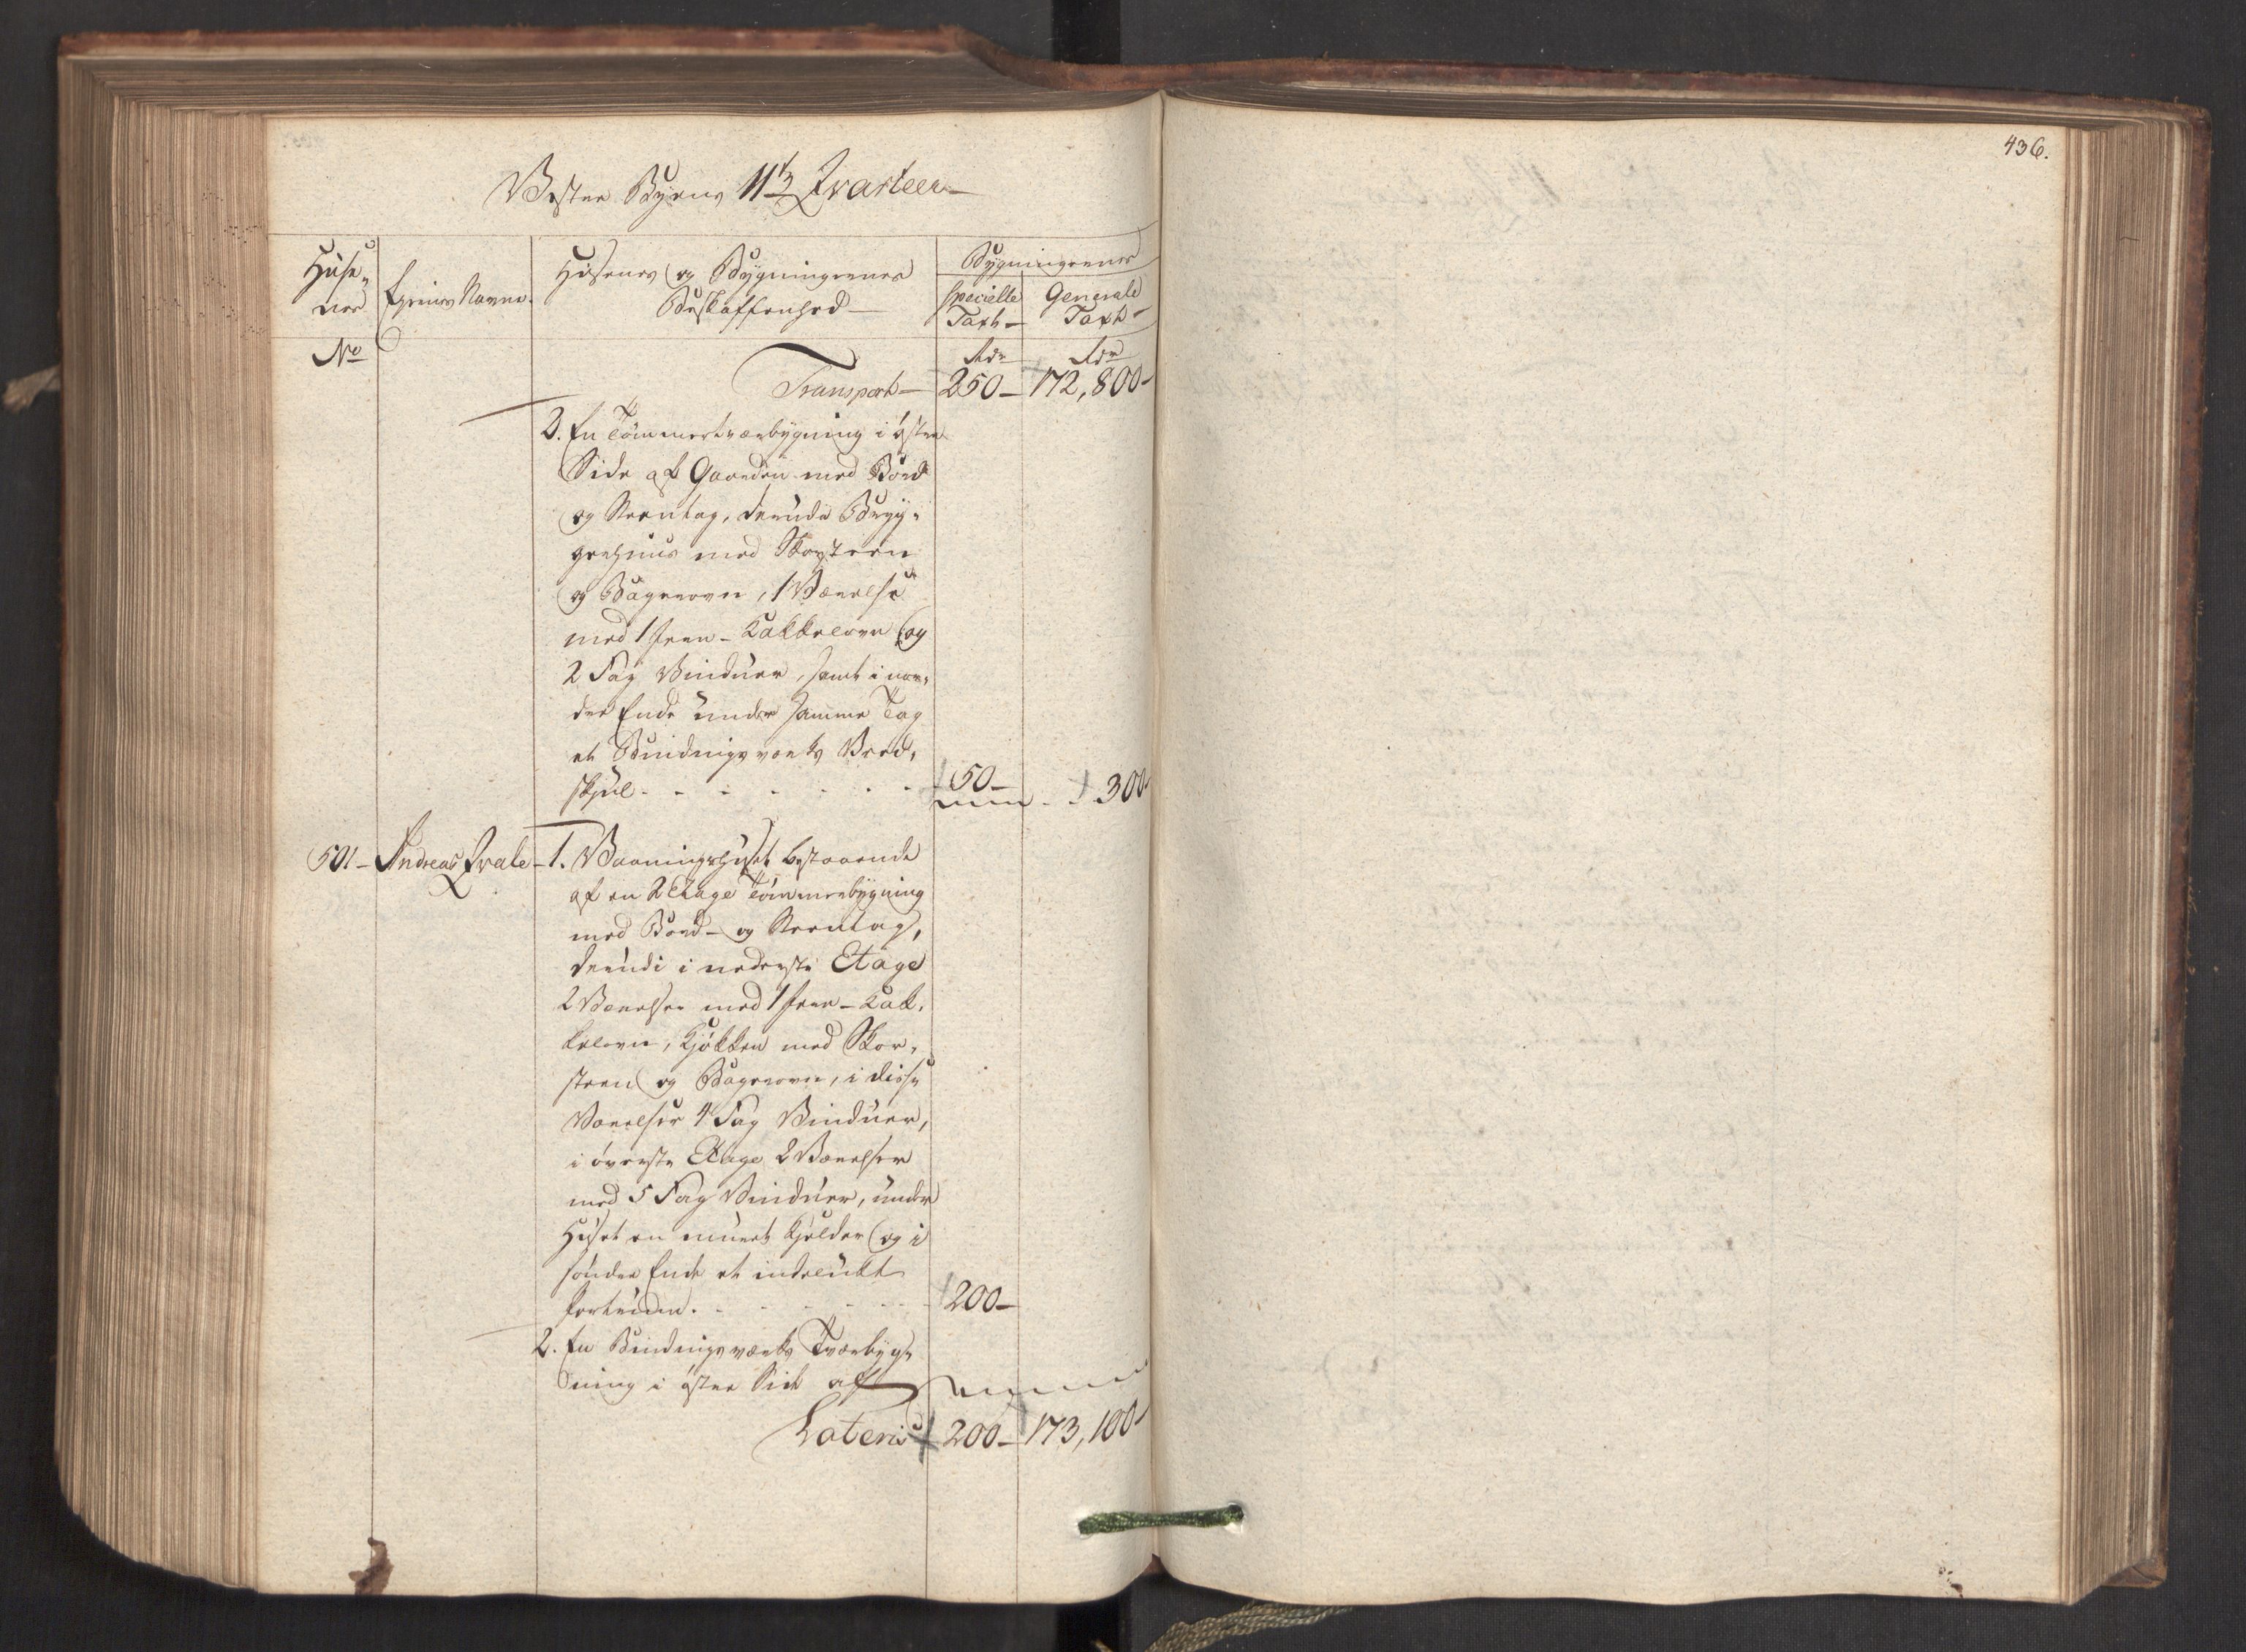 436.
Vester Byens 11te Qvarteer
Huse-
nes
Eyernes Navne.
Husenes og Bygningernes
Beskaffenhed
Bygningernes
specielle
Taxt
Generale
Taxt
No
Rdr
Rdr
Transport 250 172,800
2. En Tømmertværbygning i øster
Side af Gaarden med Bord
og Steentag, derudi Bryg-
gerhuus med Skorsteen
og Bagerovn, 1 Værelse
med 1 Jern-Kakkelovn og
2 Fag Vinduer, samt i nor-
der Ende under samme Tag
et Bindingsværks Ved-
skjul 50 300
501 Andreas Qvale 1. Vaaningshuset bestaaende
af en 2 Etage Tømmerbygning
med Bord- og Steentag,
derudi i nederste Etage
2 Værelser med 1 Jern-Kak-
kelovn, Kjøkken med Skor-
steen og Bagerovn, i disse
Værelser 4 Fag Vinduer,
i øverste Etage 2 Værelser
med 5 Fag Vinduer, under
Huset en muret Kjelder og i
sønder Ende et indelukt
Portrum. 200
2. En Bindingsværks Tværbyg-
ning i øster Side af
Lateris 200 173,100